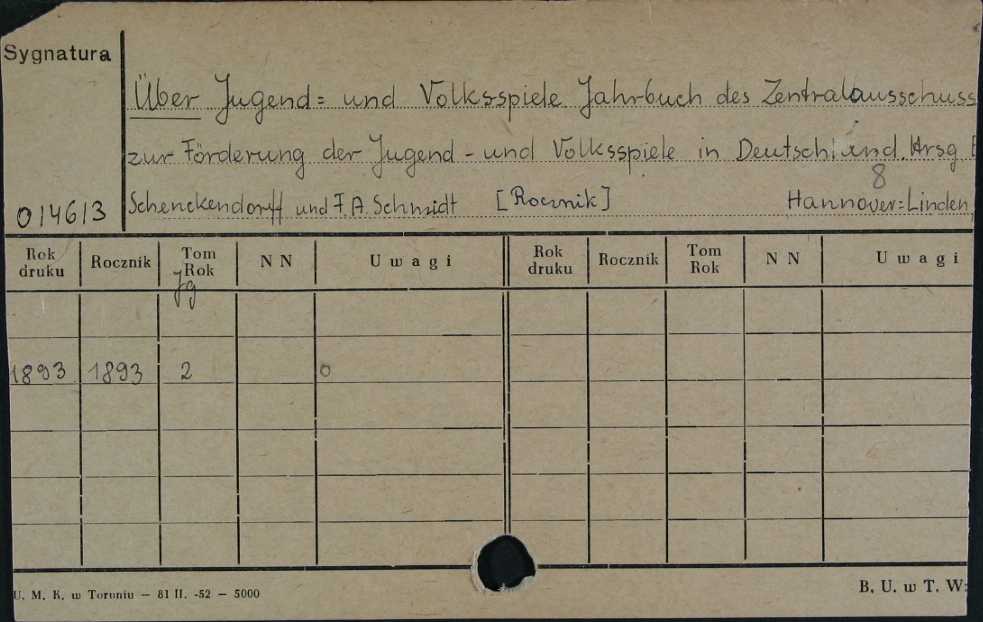 Sygnatura
Über Jugend= und Volksspiele Jahrbuch des Zentralausschuss
zur Förderung der Jugend- und Volksspiele in Deutschland. Hrsg
8
014613 Schenckendorff und F. A. Schmidt [Rocznik] Hannover=Linden,
Rok druku Rocznik Tom Rok N N Uwagi Rok druku Rocznik Tom Rok N N Uwagi
Jg
1893 1893 2 0
U. M. K. w Toruniu — 81 II. -52 — 5000 B. U. w T. W: